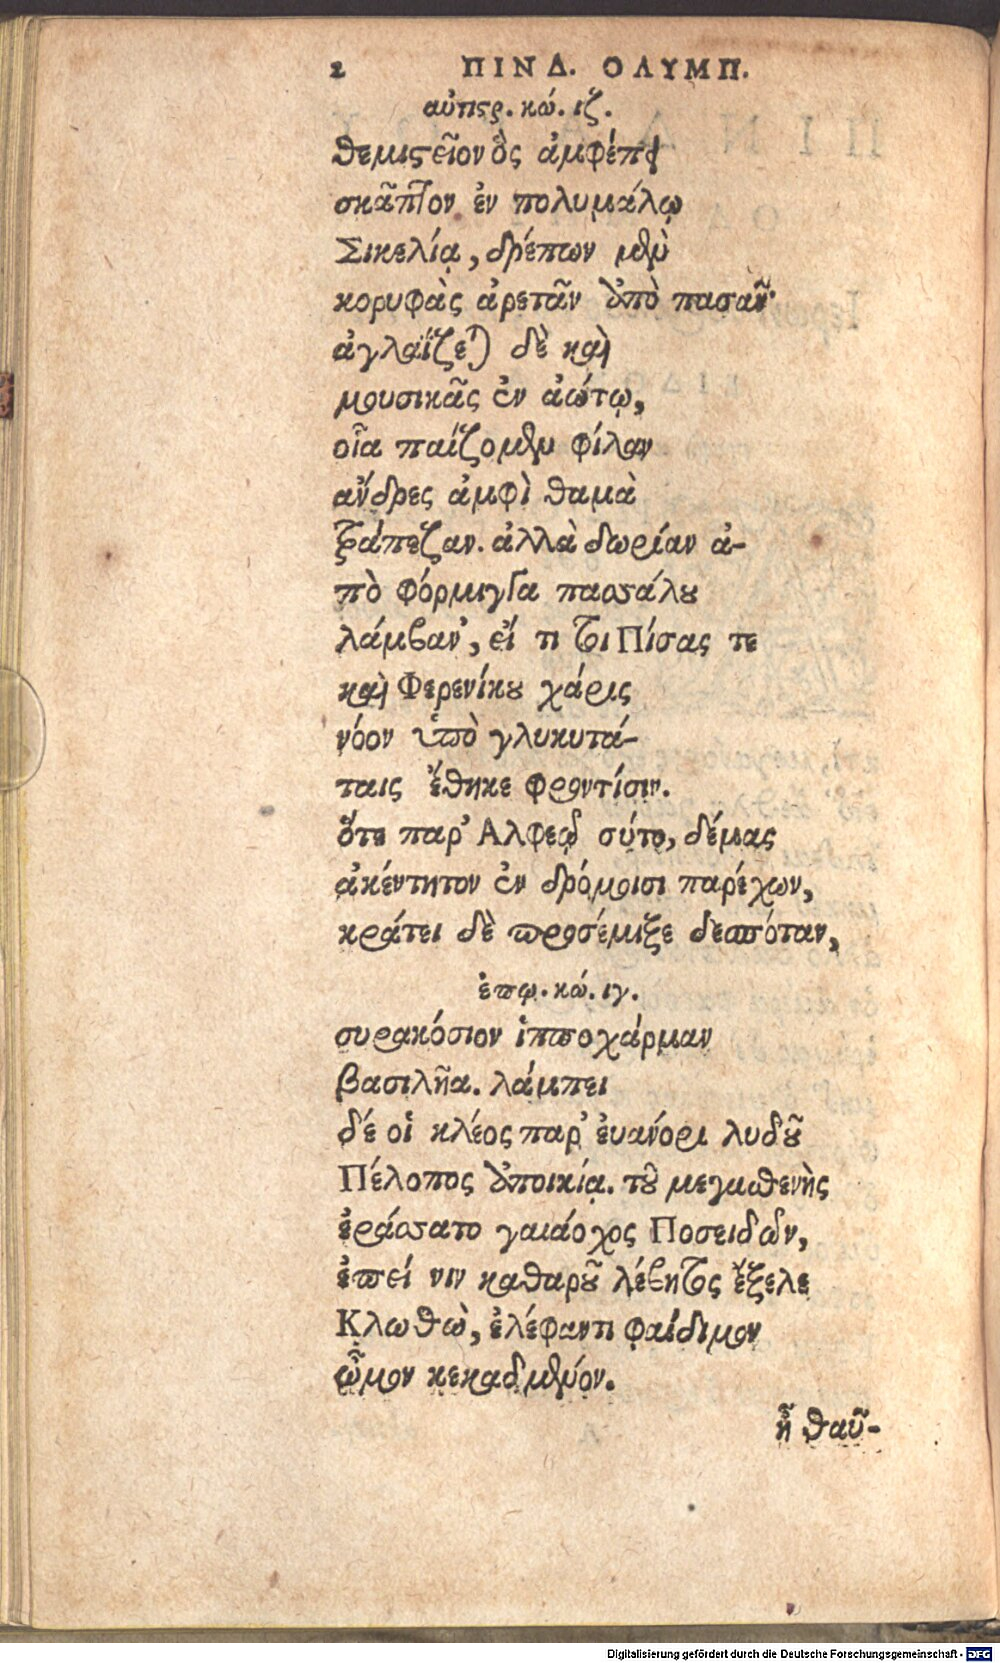 2 ΠΙΝΔ. ΟΛΥΜΠ.
αὐτιστρ. κώ. ιζ.
θεμιστεῖον ὃς ἀμφέπει
σκᾶπτον ἐν πολυμάλῳ
Σικελίᾳ, δρέπων μὲν
κορυφὰς ἀρετᾶν ἀπὸ πασᾶν·
ἀγλαΐζεται δὲ καὶ
μουσικᾶς ἐν ἀώτῳ,
οἷα παίζομεν φίλαν
ἄνδρες ἀμφὶ θαμὰ
τράπεζαν. ἀλλὰ δωρίαν ἀ-
πὸ φόρμιγγα πασσάλου
λάμβαν', εἴ τι τοι Πίσας τε
καὶ Φερενίκου χάρις
νόον ὑπὸ γλυκυτά-
ταις ἔθηκε φροντίσιν.
ὅτε παρ' Αλφεῷ σύτο, δέμας
ἀκέντητον ἐν δρόμοισι παρέχων,
κράτει δὲ προσέμιξε δεσπόταν,
ἐπῳ. κώ. ιγ.
συρακόσιον ἱπποχάρμαν
βασιλῆα. λάμπει
δέ οἱ κλέος παρ' ἐυάνορι λυδοῦ
Πέλοπος ἀποικίᾳ. τοῦ μεγασθενὴς
ἐράσσατο γαιάοχος Ποσειδῶν,
ἐπεί νιν καθαροῦ λέβητος ἔξελε
Κλωθὼ, ἐλέφαντι φαίδιμον
ὦμον κεκαδμένον.
ἦ θαῦ-
Digitalisierung gefördert durch die Deutsche Forschungsgemeinschaft - DFG